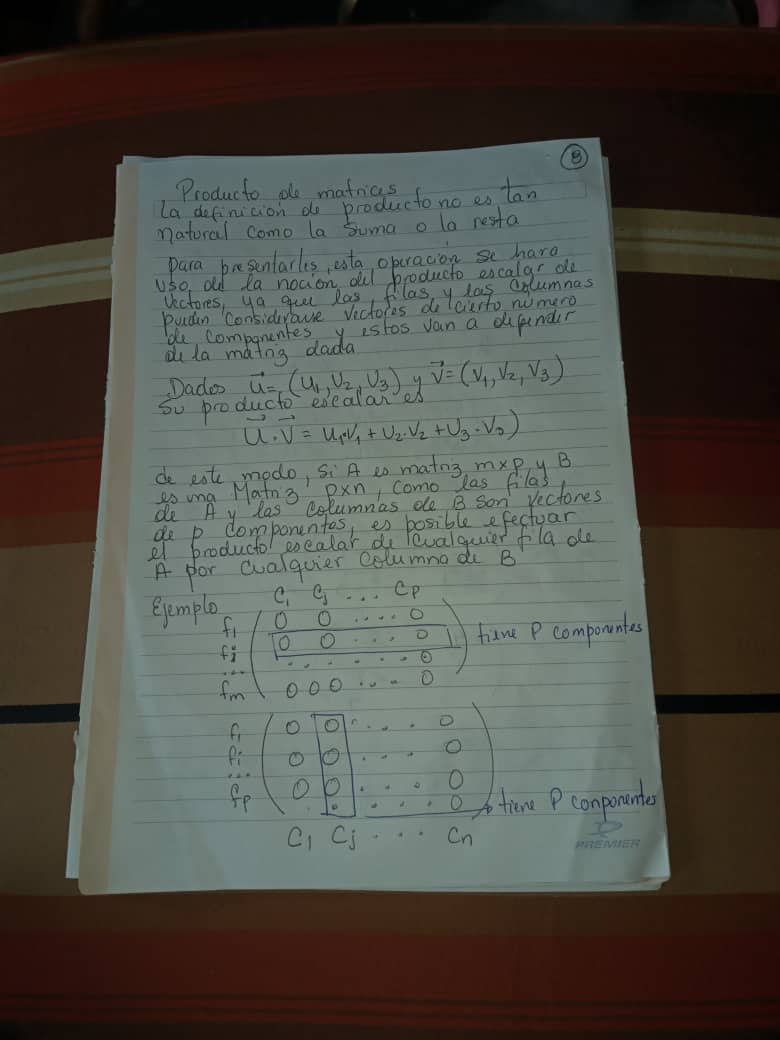 8
Producto de matrices
la definición de producto no es tan
natural como la suma o la resta
para presentarles, esta operación se hara
uso de la noción del producto escalar de
vectores, ya que las filas y las columnas
pueden considerarse vectores de cierto número
de componentes y estos van a depender
de la matriz dada
Dados u⃗ = (u₁, v₂, v₃) y v⃗ = (v₁, v₂, v₃)
Su producto escalar es
u⃗ . v⃗ = u₁.v₁ + u₂.v₂ + u₃.v₃)
de este modo, si A es matriz mxp y B
es una Matriz pxn, como las filas
de A y las columnas de B son vectores
de p componentes, es posible efectuar
el producto escalar de cualquier fila de
A por cualquier columna de B
Ejemplo
C₁ Cj ... Cp
f₁ 0 0 .... 0
fi 0 0 ... 0 tiene P componentes
... . . . . . . 0
fm 0 0 0 ... 0
f₁ 0 0 .... 0
fi 0 0 ... 0
... 0 0 .... 0
fp . .... 0 tiene P conponentes
C₁ Cj ... Cn
PREMIER